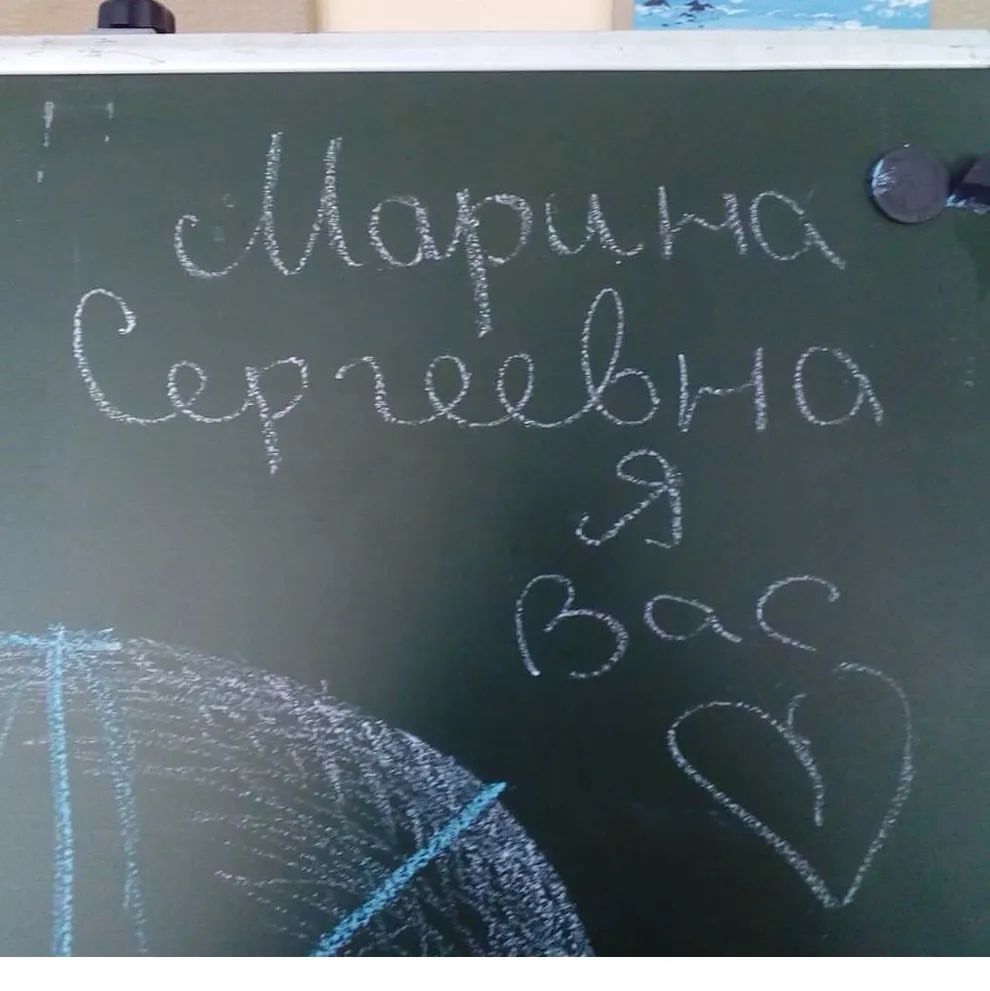 Марина
Сергеевна
Я
Вас